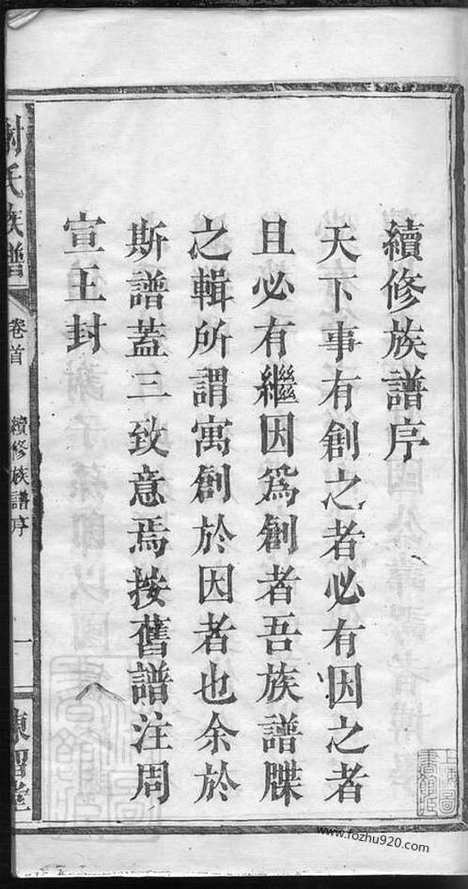 續修族譜序
天下事有創之者必有因之者
且必有繼因爲創者吾族譜牒
之輯所謂寓創於因者也余於
斯譜蓋三致意焉按舊譜注周
宣王封
氏族譜
卷首
續修族譜序
一
www.fozhu920.com